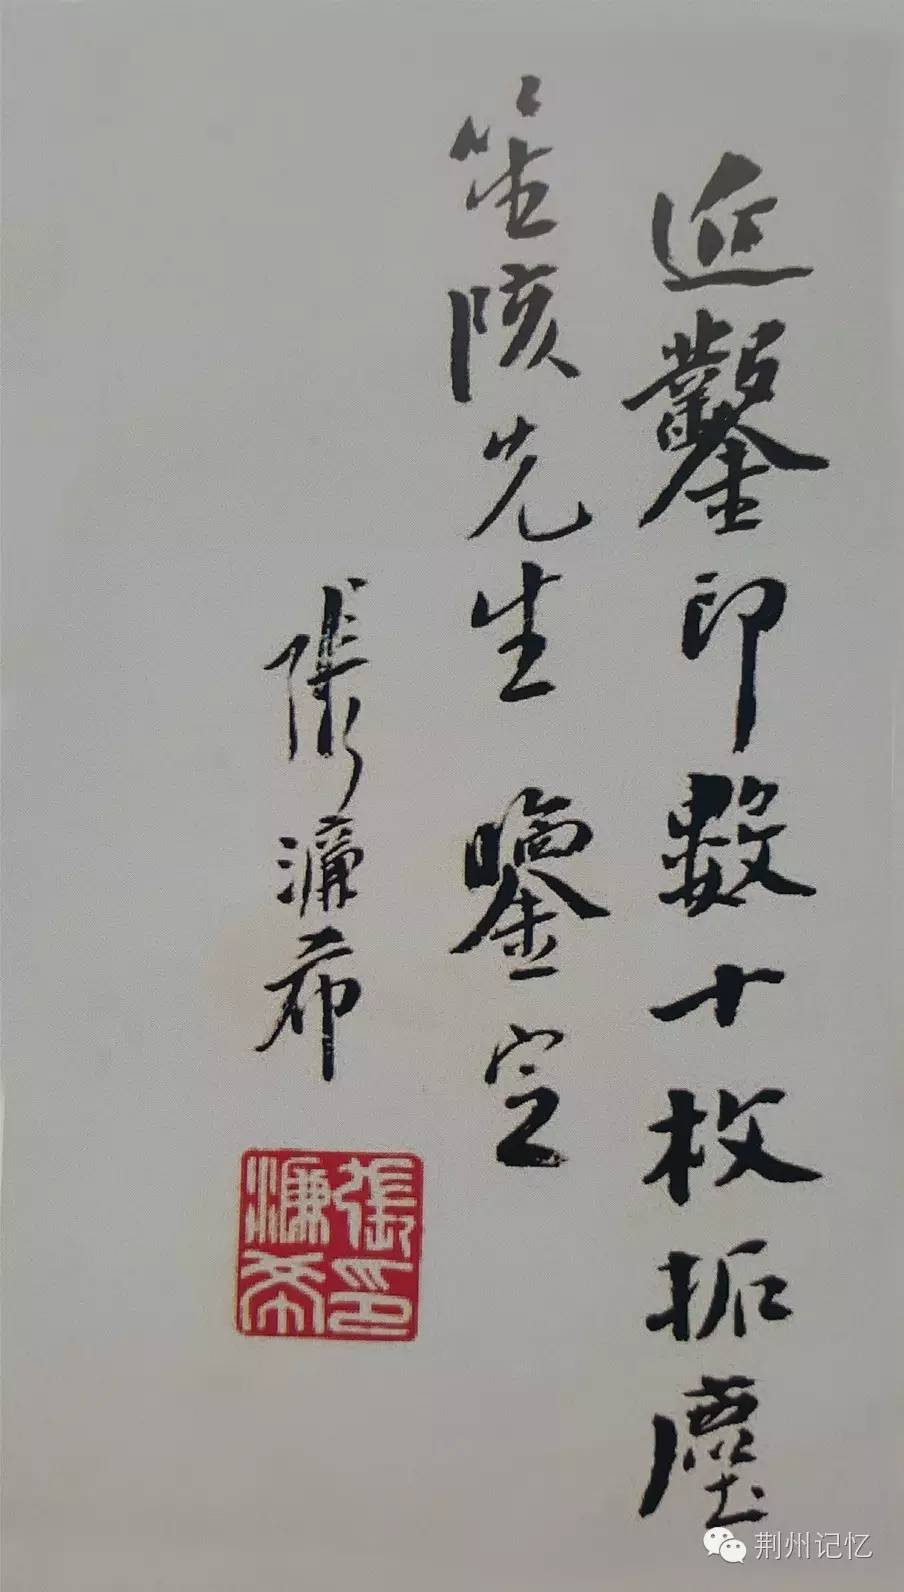 近鑿印數十枚拓塵
笙陔先生鑒定
張濂希
張印濂希
荆州记忆